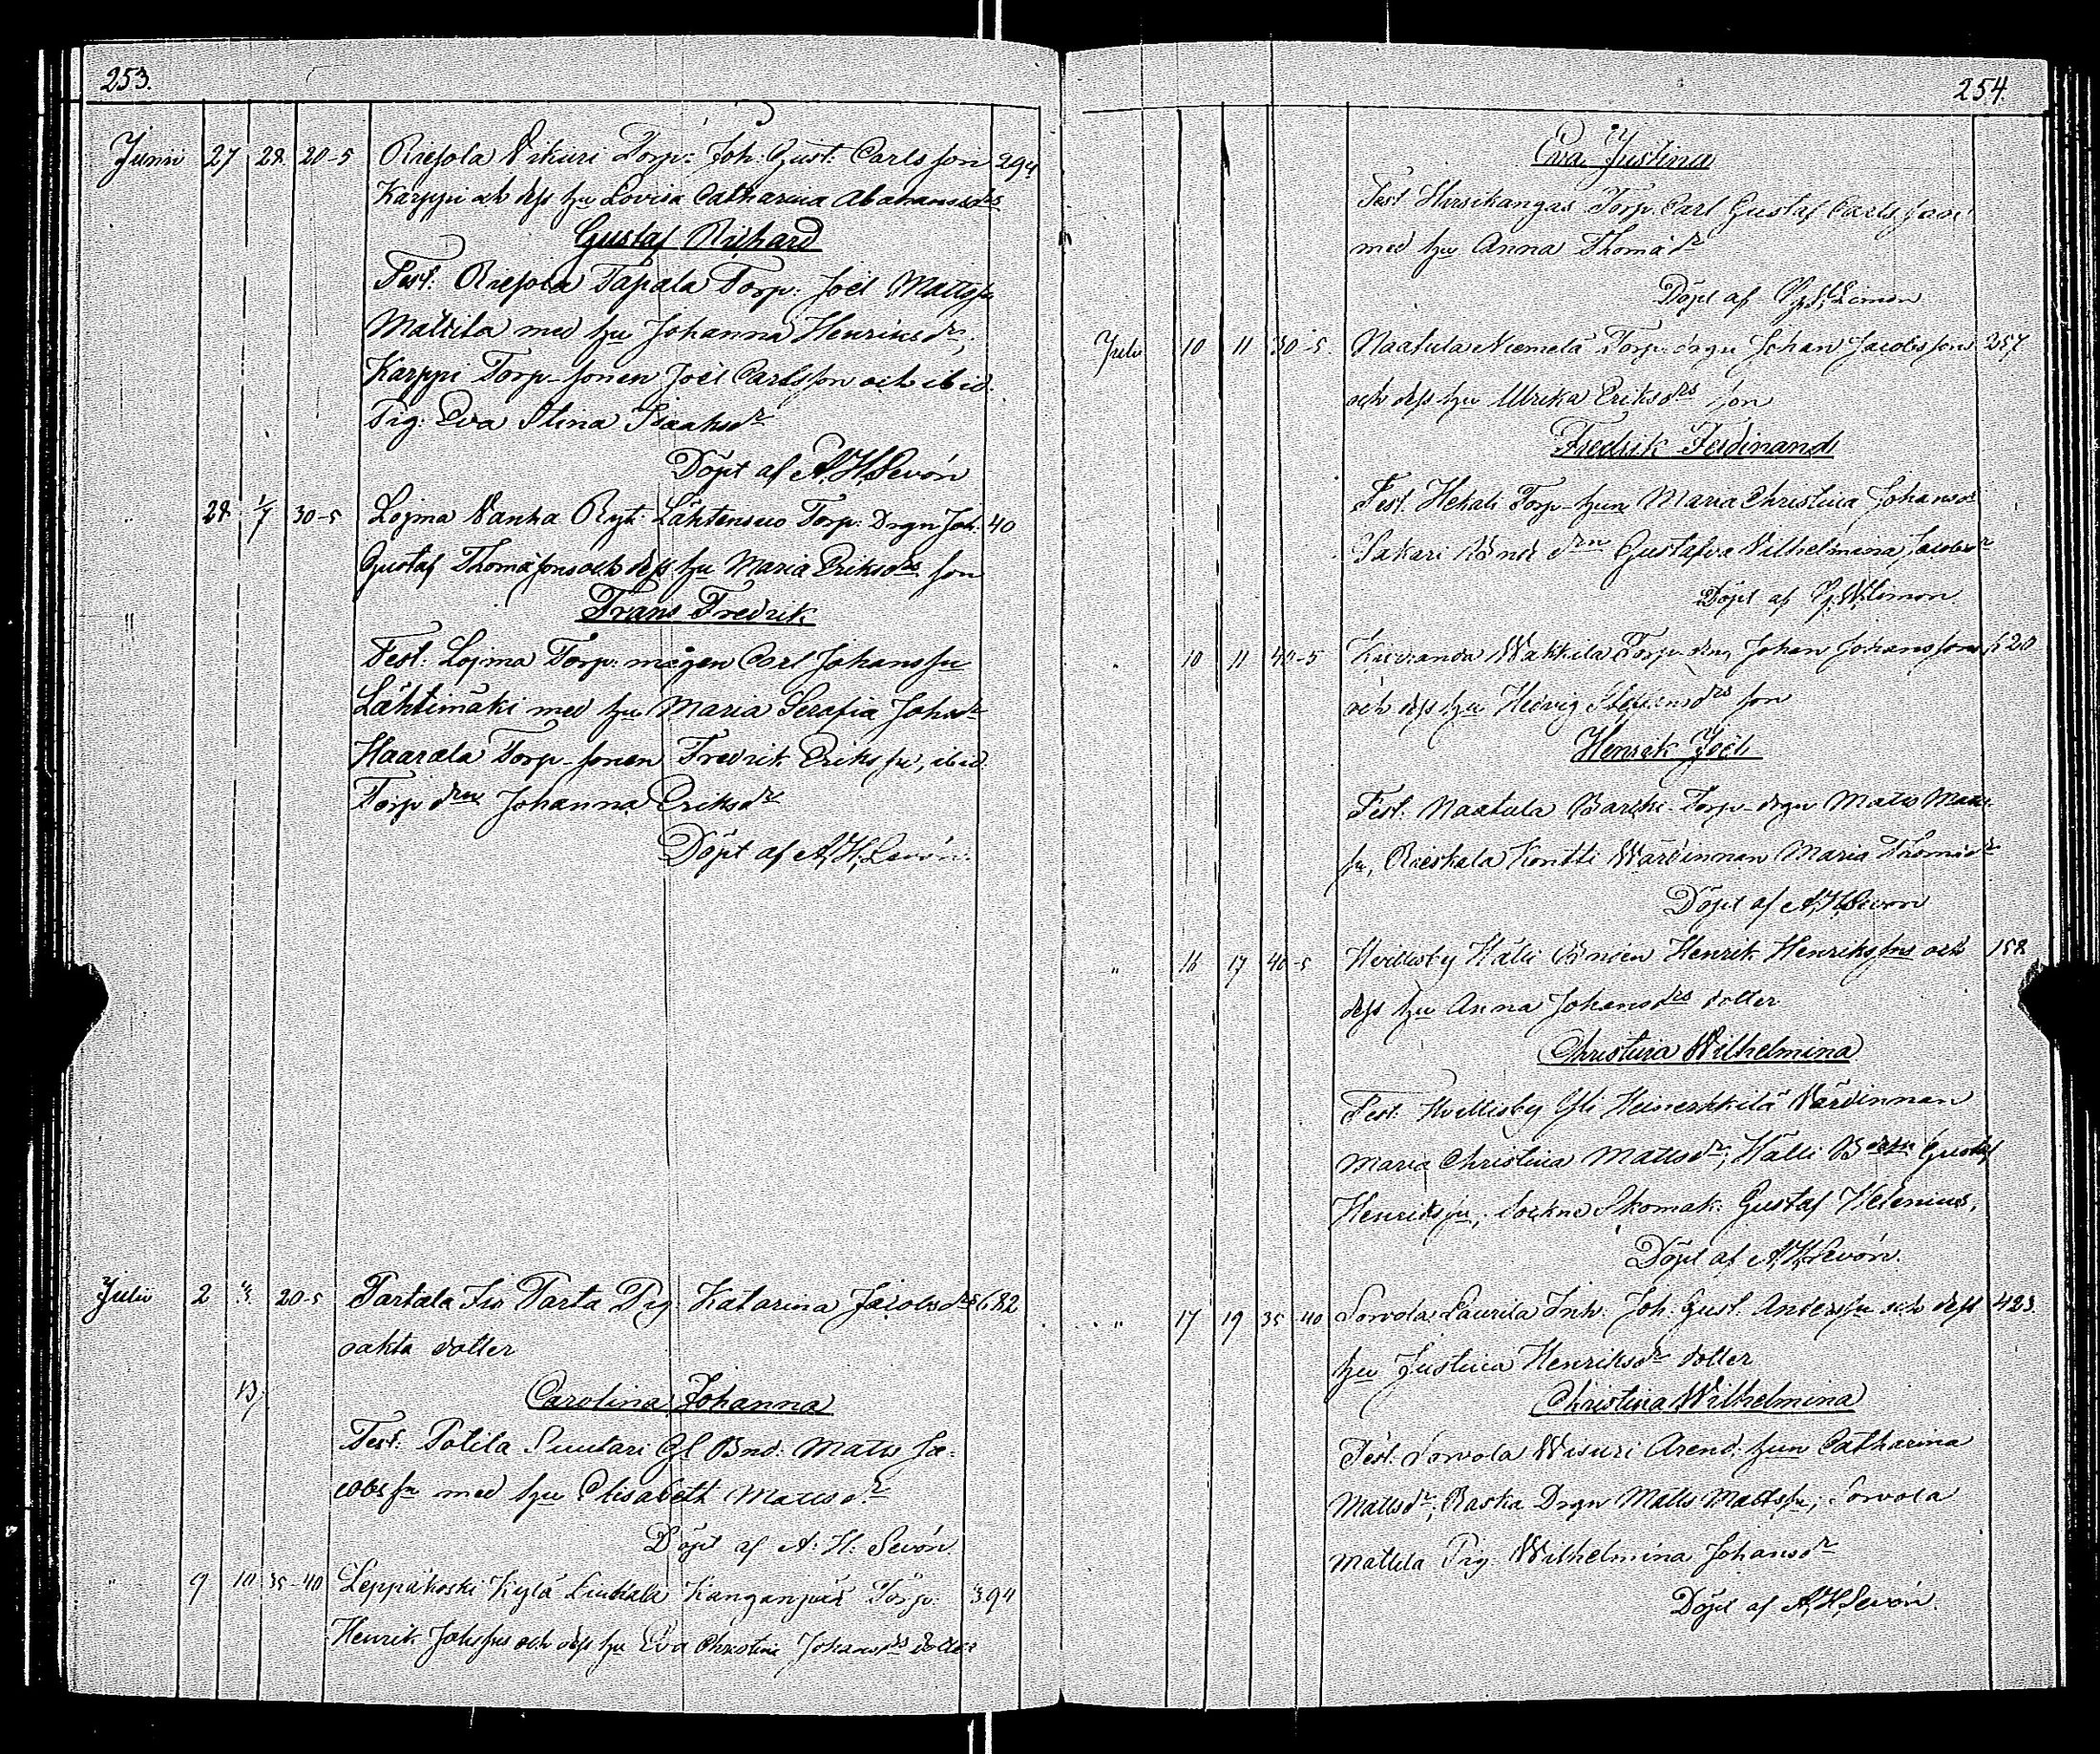 253.
Junii 27 28 20-5 Riesola Vikuri Torp: Joh: Gust: Carlsson 294
Karppi och dess hu Lovisa Catharina Abahamsdrs
Gustaf Richard
Test: Riesola Tapala Torp: Joel Mattssn
Mattila med hu Johanna Henriksdr,
Karppi Torp-sonen Joel Carlsson och ibid.
Pig: Eva Stina Isaaksdr
Döpt af A. H. Sevón
" 28 1/7 30-5 Loima Vanha Ryt: Lähtensuo Torp: Drgn Joh: 40
Gustaf Thomæsons och dess hu Maria Eriksdrs son
Frans Fredrik
"
Test: Loima Torp: mågen Carl Johanssn
Lähtimäki med hu Maria Serafia Johsdr
Haarala Torp-sonen Fredrik Erikssn, ibid.
Torp drn Johanna Eriksdr
Döpt af A. H. Sevón.
Julii 2 3. 20-5 Tartala Iso Tarta Pig: Katarina Jacobsdrs 682
oäkta dotter
13/ Carolina Johanna
Test: Potila Suutari Gl Bnd: Matts Ja-
cobssn med hu Elisabeth Mattsdr
Döpt af A. H. Sevón.
" 9 10 35-40 Leppäkoski Kylä Liukala Kanganpää Torp: 394
Henrik Johssns och dess hu Eva Christina Johansdrs dotter
254.
Eva Justina
Test Hirsikangas Torp. Carl Gustaf Carlsson
med hu Anna Thomædr
Döpt af Limon
Julii 10 11 30-5. Naatula Niemelä Torp: drgn Johan Jacobssons 257
och dess hu Ulrika Eriksdrs son
Fredrik Ferdinand
Test. Hekali Torp-hun Maria Christina Johansdr
Sakari Bnd drn Gustafva Vilhelmina Jacobsdr
Döpt af Limon.
" 10 11 40-5 Wakkila Torp: Johan Johanssons 620
och dess hu Hedvig Steffensdrs son
Henrik Joel
Test: Naatula Torp-drgn Matts Matts-
sn, Rieskala Kontti Värdinnan Maria Thomædr
Döpt af A. H. Sevón
" 16 17 40-5 Hvittisby Hälli Bnden Henrik Henrikssns och 158
dess hu Anna Johansdrs dotter
Christina Wilhelmina
Test. Hvittisby Heinerkkilä Värdinnan
Maria Christina Mattsdr, Hälli Gustaf
Henrikssn, Sockne Skomak: Gustaf Helenius,
Döpt af A. H. Sevón.
" 17 19 35-40 Sorvola Laurila Inh. Joh. Gust. Anderssn och dess 423.
hu Justina Henriksdr dotter
Christina Wilhelmina
Test: Sorvola Wisuri Arend: hun Catharina
Mattsdr, Raska Drgn Matts Mattssn, Sorvola
Mattila Pig Wilhelmina Johansdr
Döpt af A. H. Sevón.